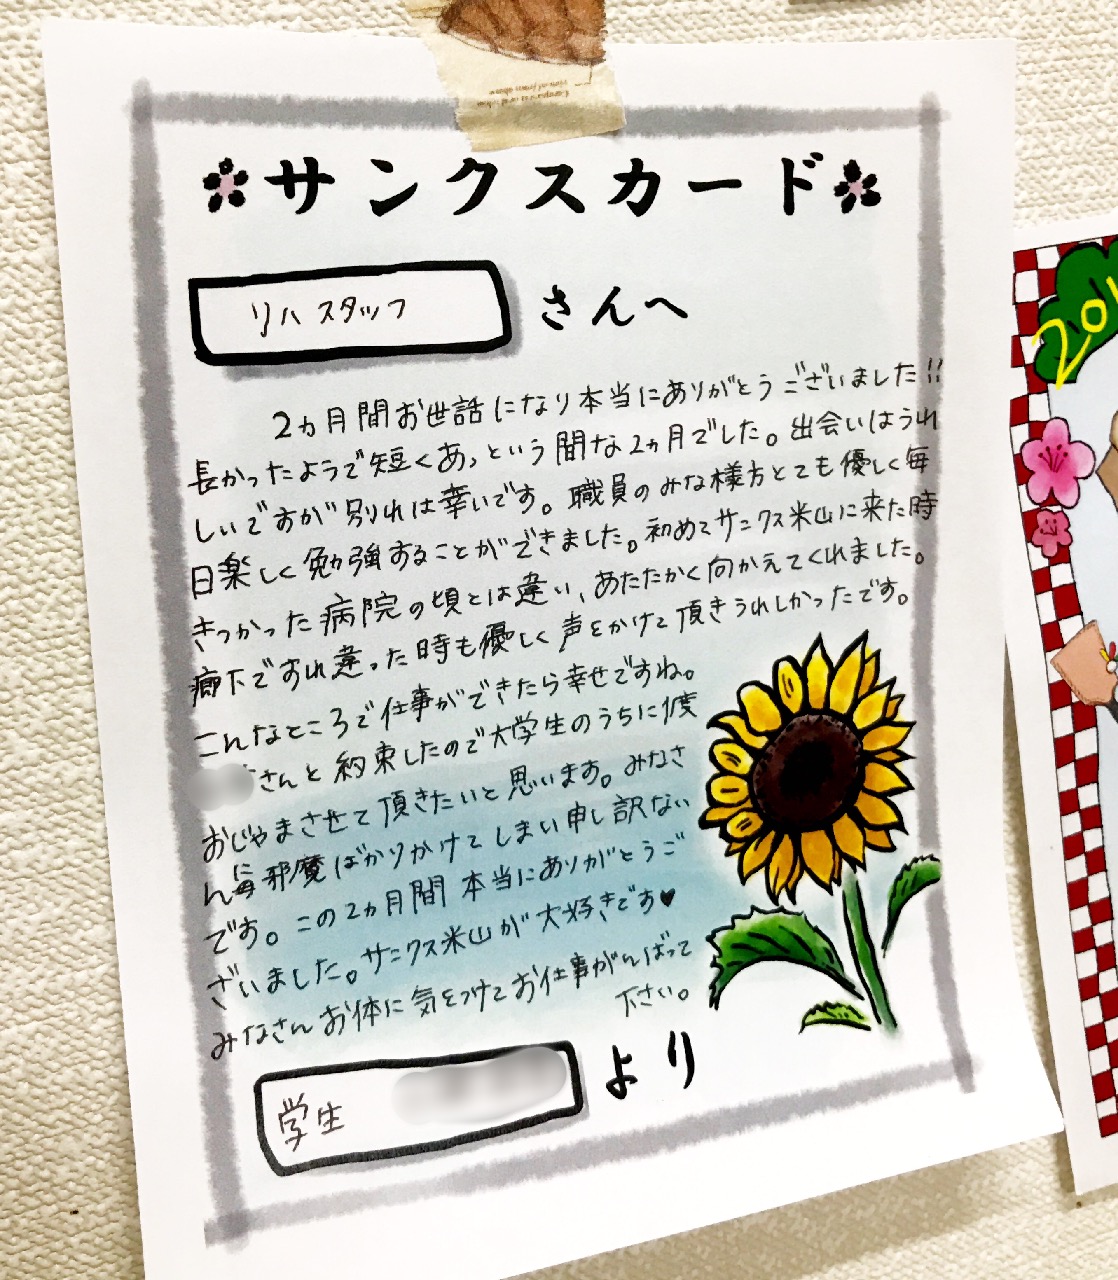 サンクスカード
リハスタッフ さんへ
2ヵ月間お世話になり本当にありがとうございました!!
長かったようで短くあっという間な2ヵ月でした。出会いはうれ
しいですが別れは幸いです。職員のみな様方とても優しく毎
日楽しく勉強することができました。初めてサニクス米山に来た時
きつかった病院の頃とは違い、あたたかく向かえてくれました。
廊下ですれ違った時も優しく声をかけて頂きうれしかったです。
こんなところで仕事ができたら幸せですね。
さんと約束したので大学生のうちに1度
おじゃまさせて頂きたいと思います。みなさ
んに毎邪魔ばかりかけてしまい申し訳ない
です。この2ヵ月間本当にありがとうご
ざいました。サニクス米山が大好きです♥
みなさんお体に気をつけてお仕事がんばって
下さい。
学生 より
201